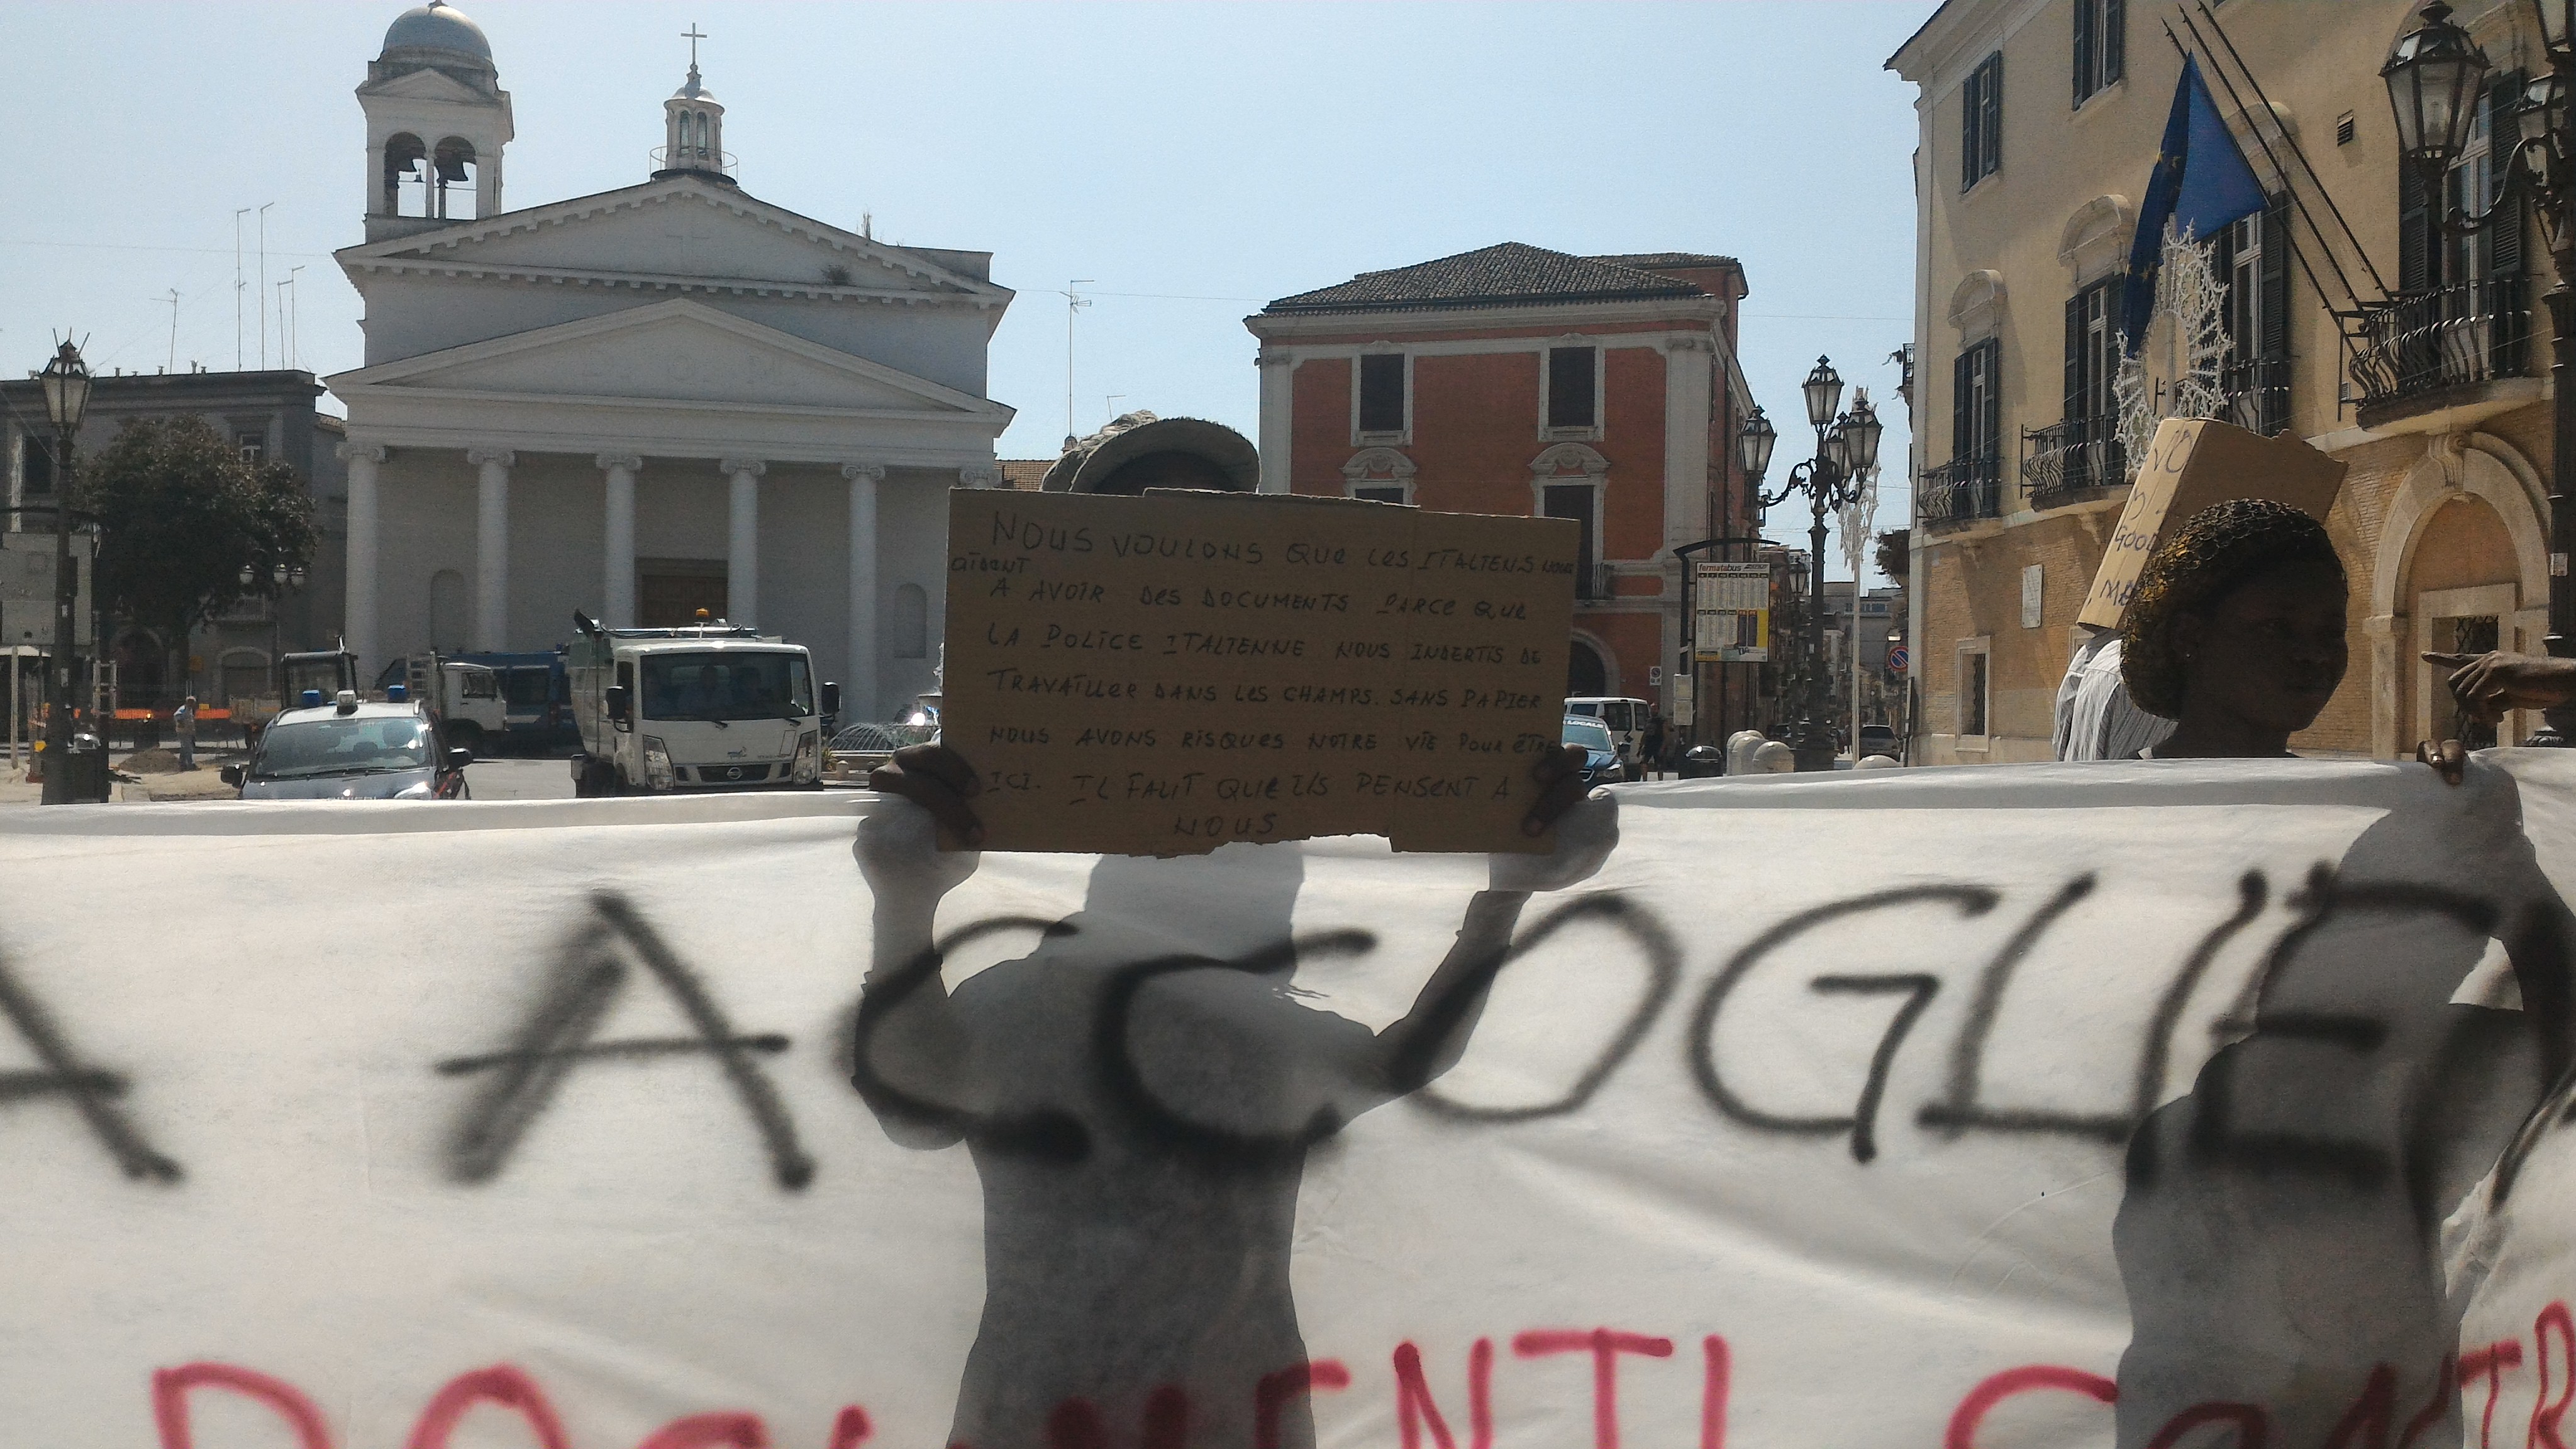 NOUS VOULONS QUE LES ITALIENS NOUS
AIDENT
A AVOIR DES DOCUMENTS PARCE QUE
LA POLICE ITALIENNE NOUS INDERTIS DE
TRAVAILLER DANS LES CHAMPS. SANS PAPIER
NOUS AVONS RISQUES NOTRE VIE POUR ÊTRE
ICI. IL FAUT QUE ILS PENSENT A
NOUS
fermatabus
NO
GOOD
A ACCOGLIE
DOCUMENTI CONTR